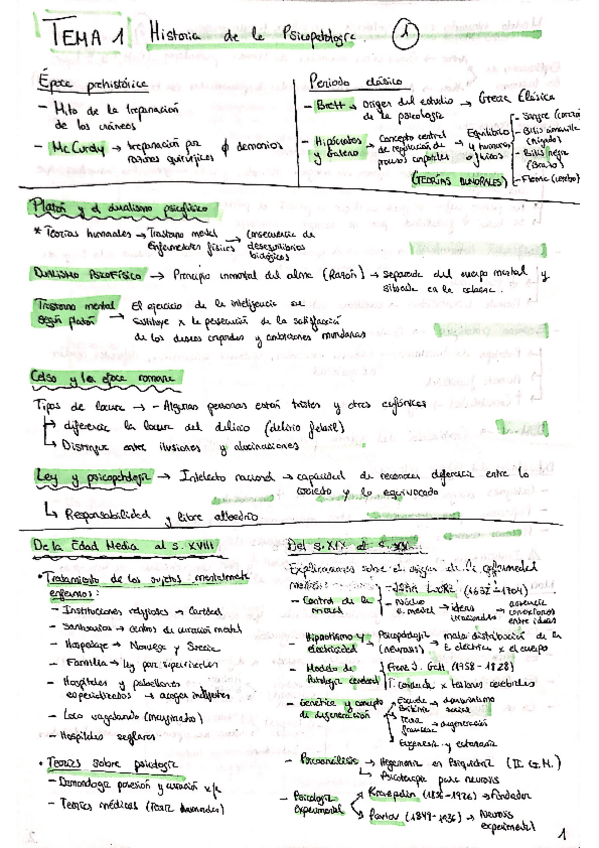 TEMA 1 Historia de la Psicopatología. 1
Época prehistórica
- Mito de la trepanación
de los cráneos
- Mc Curdy → trepanación por ∮ demonios
razones quirúrjicas
Periodo clásico
- Brett → Origen del estudio → Grecia Clásica
de la psicología
- Hipócrates → Concepto central → Equilibrio
y Galeno de regulación de 4 humores
procesos corporales o fluidos
(TEORÍAS HUMORALES)
- Sangre (corazón)
- Bilis amarilla
(hígado)
- Bilis negra
(Bazo)
- Flema (cerebro)
Platón y el dualismo psicofísico
* Teorías humorales → Trastorno mental → Consecuencia de
Enfermedades físicas desequilibrios
biológicos
DUALISMO PSICOFÍSICO → Principio inmortal del alma (Razón) → separada del cuerpo mortal y
situada en la cabeza.
Trastorno mental → El ejercicio de la inteligencia se
según platón sustituye x la persecución de la satisfacción
de los deseos corporales y ambiciones mundanas
Celso y la época romana
Tipos de locura → - Algunas personas están tristes y otras eufóricas
↳ diferencia la locura del delirio (delirio febril)
↳ Distingue entre ilusiones y alucinaciones
Ley y psicopatología → Intelecto racional → capacidad de reconocer diferencia entre lo
correcto y lo equivocado
↳ Responsabilidad y libre albedrío
De la Edad Media al s. XVIII
• Tratamiento de los sujetos mentalmente
enfermos:
- Instituciones religiosas → Caridad
- Santuarios → centros de curación mental
- Hospedaje → Noruega y Suecia
- Familia → ley
- Hospitales y pabellones
especializados → acoger indigentes
- Loco vagabundo (marginado)
- Hospitales seglares
• Teorías sobre psicología
- Demonología posesión y curación
- Teorías médicas (Teoría humorales)
Del s. XIX al s. XX
Explicaciones sobre el origen de la enfermedad
mental:
- Control de la → - JOHN LOCKE (1632-1704)
mente - Núcleo → ideas → ausencia
e. mental irracionales conexiones
entre ideas
- Hipnotismo y → Psicopatología → mala distribución de la
electricidad (neurosis) E. eléctrica x el cuerpo
- Modelo de Franz J. Gall (1958-1828)
Patología cerebral T. conducta x lesiones cerebrales
- Genética y concepto Escuela → darwinismo
de degeneración británica social
Teoría → degeneración
francesa
Eugenesia y eutanasia
- Psicoanálisis → Hegemonía en Psiquiatría (II G.M.)
↳ Psicoterapia para neurosis
- Psicología Kraepelin (1856-1926) → Fundador
experimental Pavlov (1849-1936) → Neurosis
experimental
1